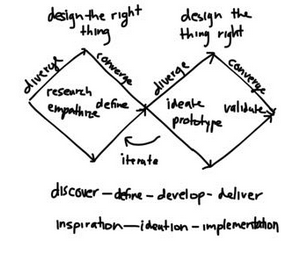 design the right
thing
design the
thing right
diverge
converge
diverge
converge
research
empathize
define
ideate
prototype
validate
iterate
discover – define – develop – deliver
inspiration – ideation – implementation